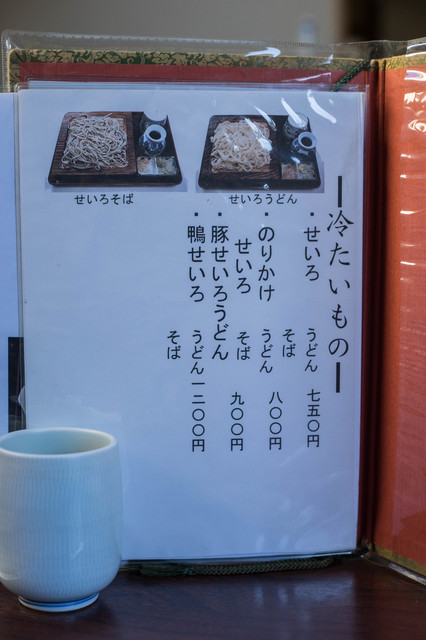 せいろそば
せいろうどん
ー冷たいものー
・せいろ うどん 七五〇円
そば
・のりかけ うどん 八〇〇円
せいろ そば
・豚せいろうどん 九〇〇円
・鴨せいろ うどん 一二〇〇円
そば